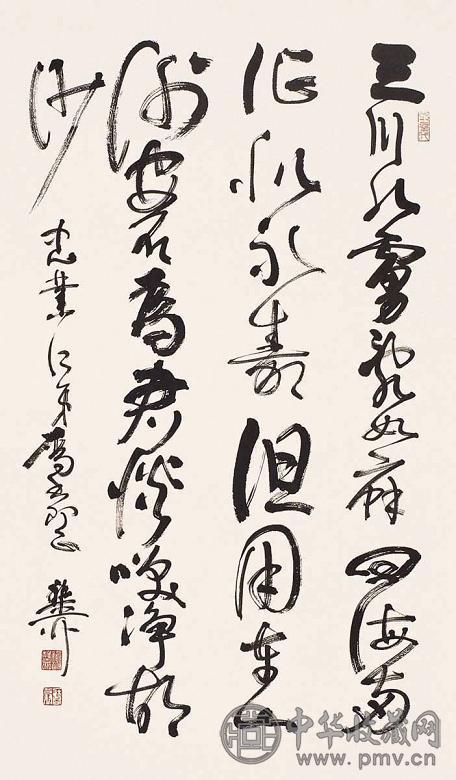 三川北虜亂如麻四海南
奔似永嘉但用東山
謝安石爲君談咲淨胡
沙
忠業仁弟屬書 稚柳
中华收藏网
www.pmv.cn